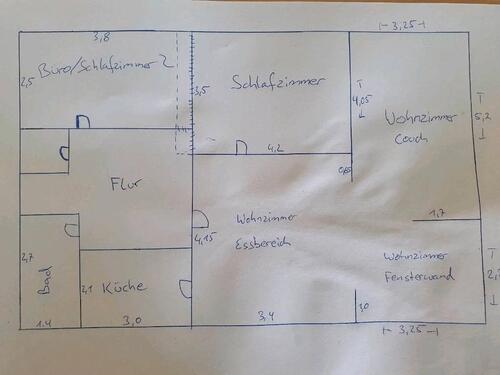 3,8
3,25
Büro/Schlafzimmer 2
2,5
3,5
Schlafzimmer
4,05
Wohnzimmer
Couch
5,2
4,2
0,65
Flur
1,7
4,15
Wohnzimmer
Essbereich
Wohnzimmer
Fensterwand
2,7
Bad
2,1
Küche
1,0
1.4
3,0
3,4
3,25